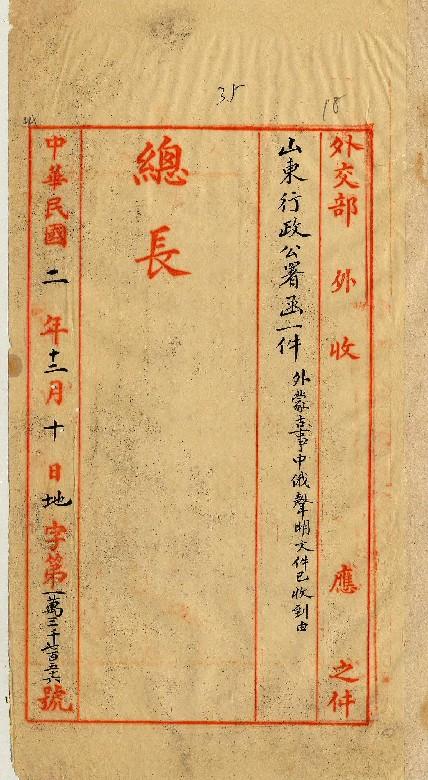 35
18
外交部 外收 應 之件
山東行政公署函一件 外蒙古事中俄聲明文件已收到由
總長
中華民國二年十二月十日地字第一萬三千 百五十六號